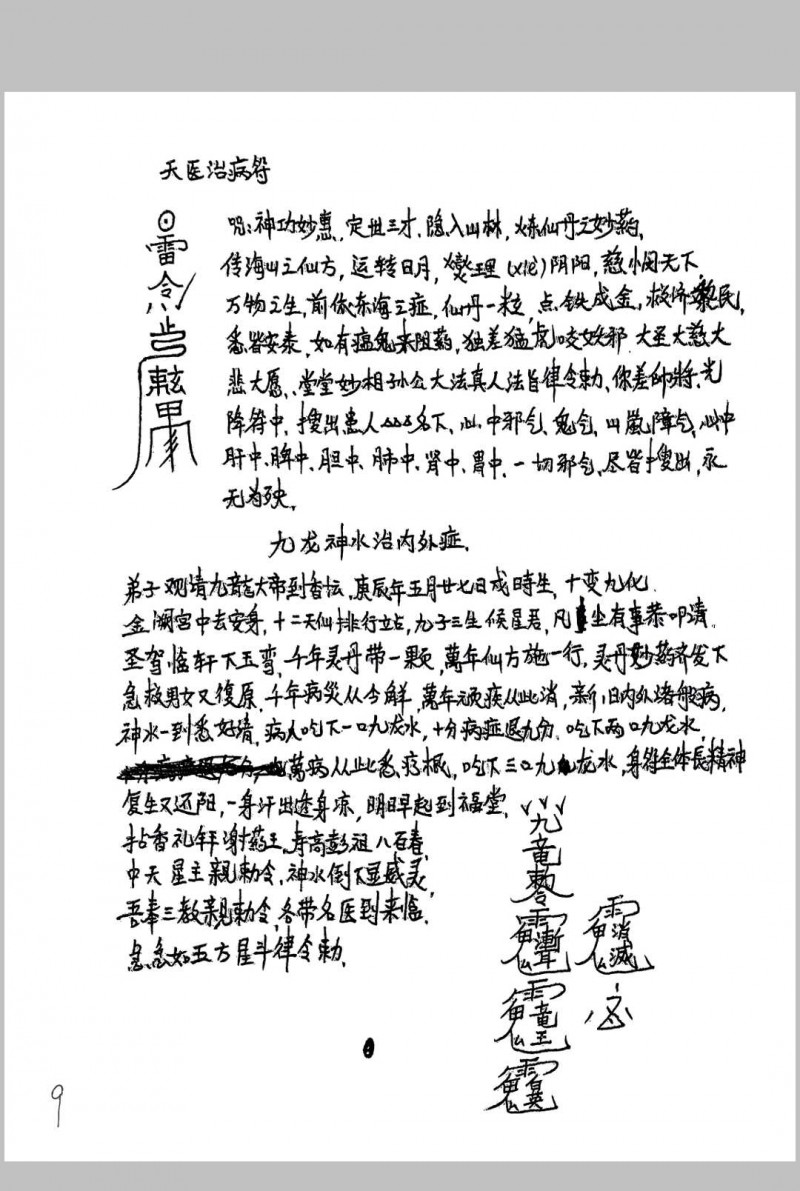 天医治病符
咒:神功妙惠,定世三才,隐入山林,炼仙丹之妙药,
传海山之仙方,运转日月,燮理(义化)阴阳,慈悯天下,
万物之生,前依东海三症,仙丹一粒,点铁成金,救济黎民,
悉皆安泰,如有瘟鬼来阻药,独差猛虎咬妖邪.大圣大慈大
悲大愿、堂堂妙相孙公大法真人法旨律令勅、你差帅将光
降符中,搜出患人△△△名下、心中邪气、鬼气、山嵐障气、心中
肝中、脾中、胆中、肺中、肾中、胃中、一切邪气、尽皆搜出,永
无为殃,
九龙神水治内外症.
弟子观请九龍大帝到香坛,庚辰年五月廿七日戌時生,十变九化
金阙宫中去安身,十二天仙排行立站,九子三生候星君,凡坐有事恭叩请
圣驾临轩下玉鸾,千年灵丹带一颗,萬年仙方施一行,灵丹妙药齐发下
急救男女又復原,千年病災从今解,萬年顽疾从此消,新旧内外诸般病,
神水一到悉好清,病人吃下一口九龙水,十分病症退九分.吃下两口九龙水,
萬病从此悉疗根,吃下三口九龙水,身符全体長精神
复生又还阳,一身汗出透身凉,明日早起到福堂,
拈香礼拜谢药王,寿高彭祖八百春,
中天星主親勅令.神水倒下显威灵,
吾奉三教親勅令,各带名医到来临.
急急如五方星斗律令勅.
9